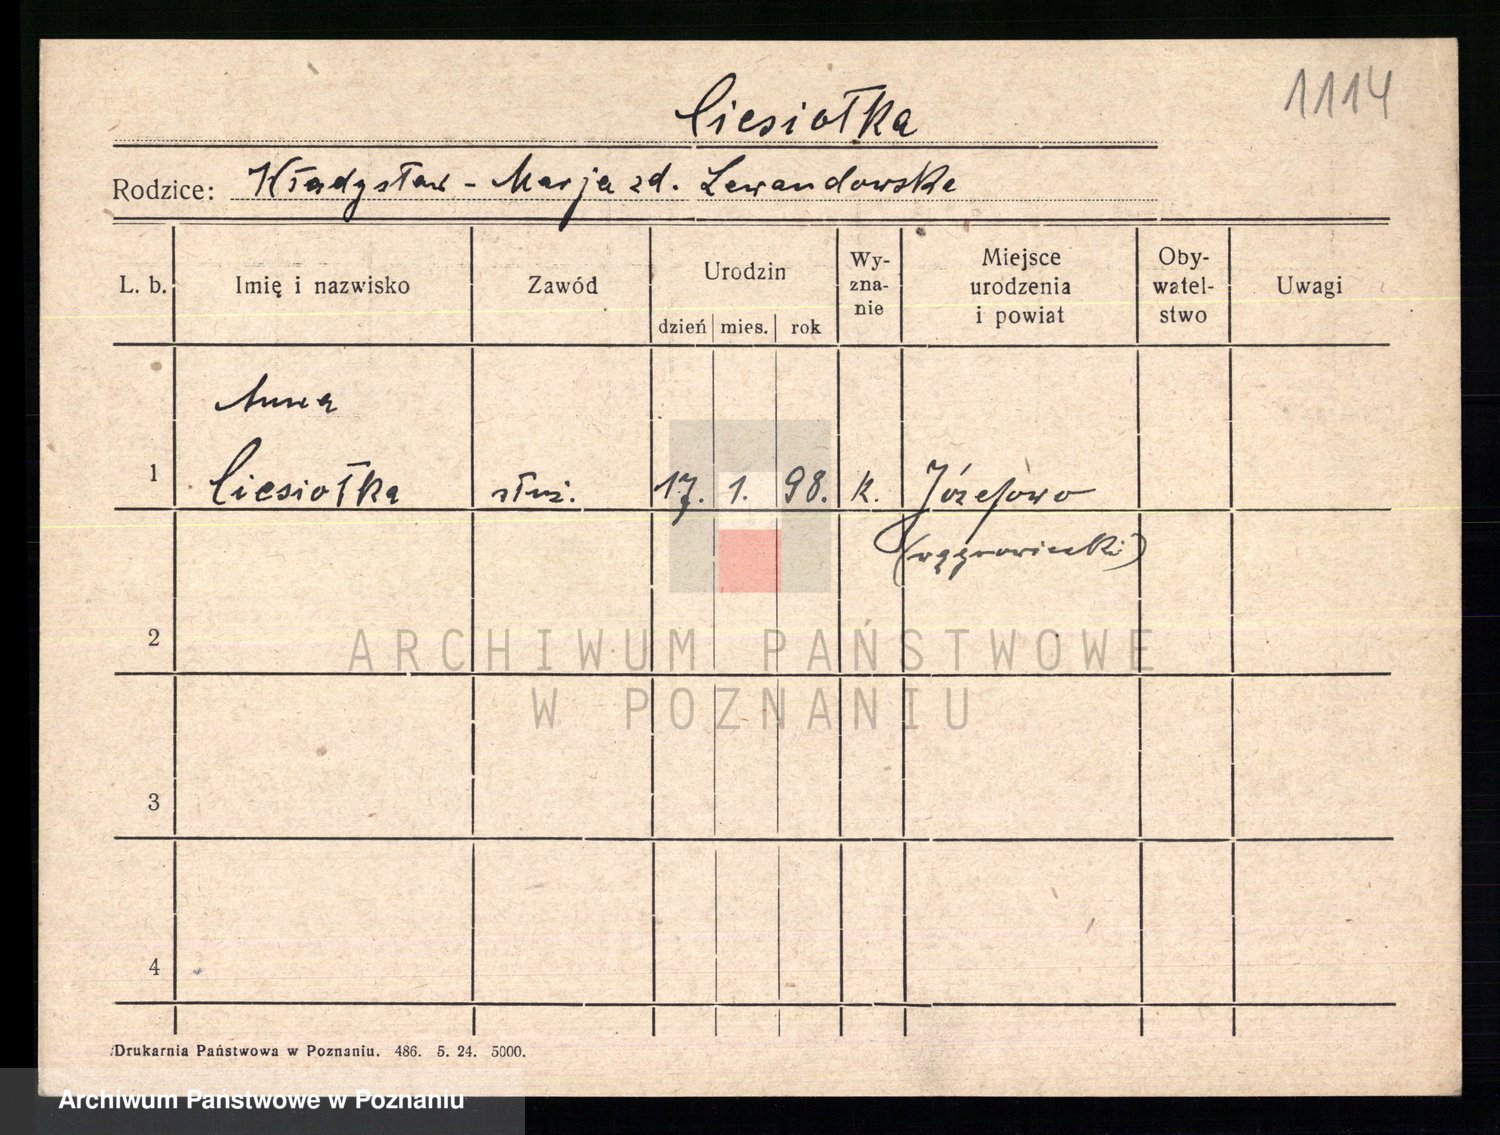 1114
Ciesiołka
Rodzice: Władysław - Marja zd. Lewandowska
L. b. Imię i nazwisko Zawód Urodzin Wy-zna-nie Miejsce urodzenia i powiat Oby-watel-stwo Uwagi
dzień mies. rok
Anna
1 Ciesiołka służ. 17. 1. 98. k. Józefowo
(wągrowiecki)
2
ARCHIWUM PAŃSTWOWE
W POZNANIU
3
4
Drukarnia Państwowa w Poznaniu. 486. 5. 24. 5000.
Archiwum Państwowe w Poznaniu